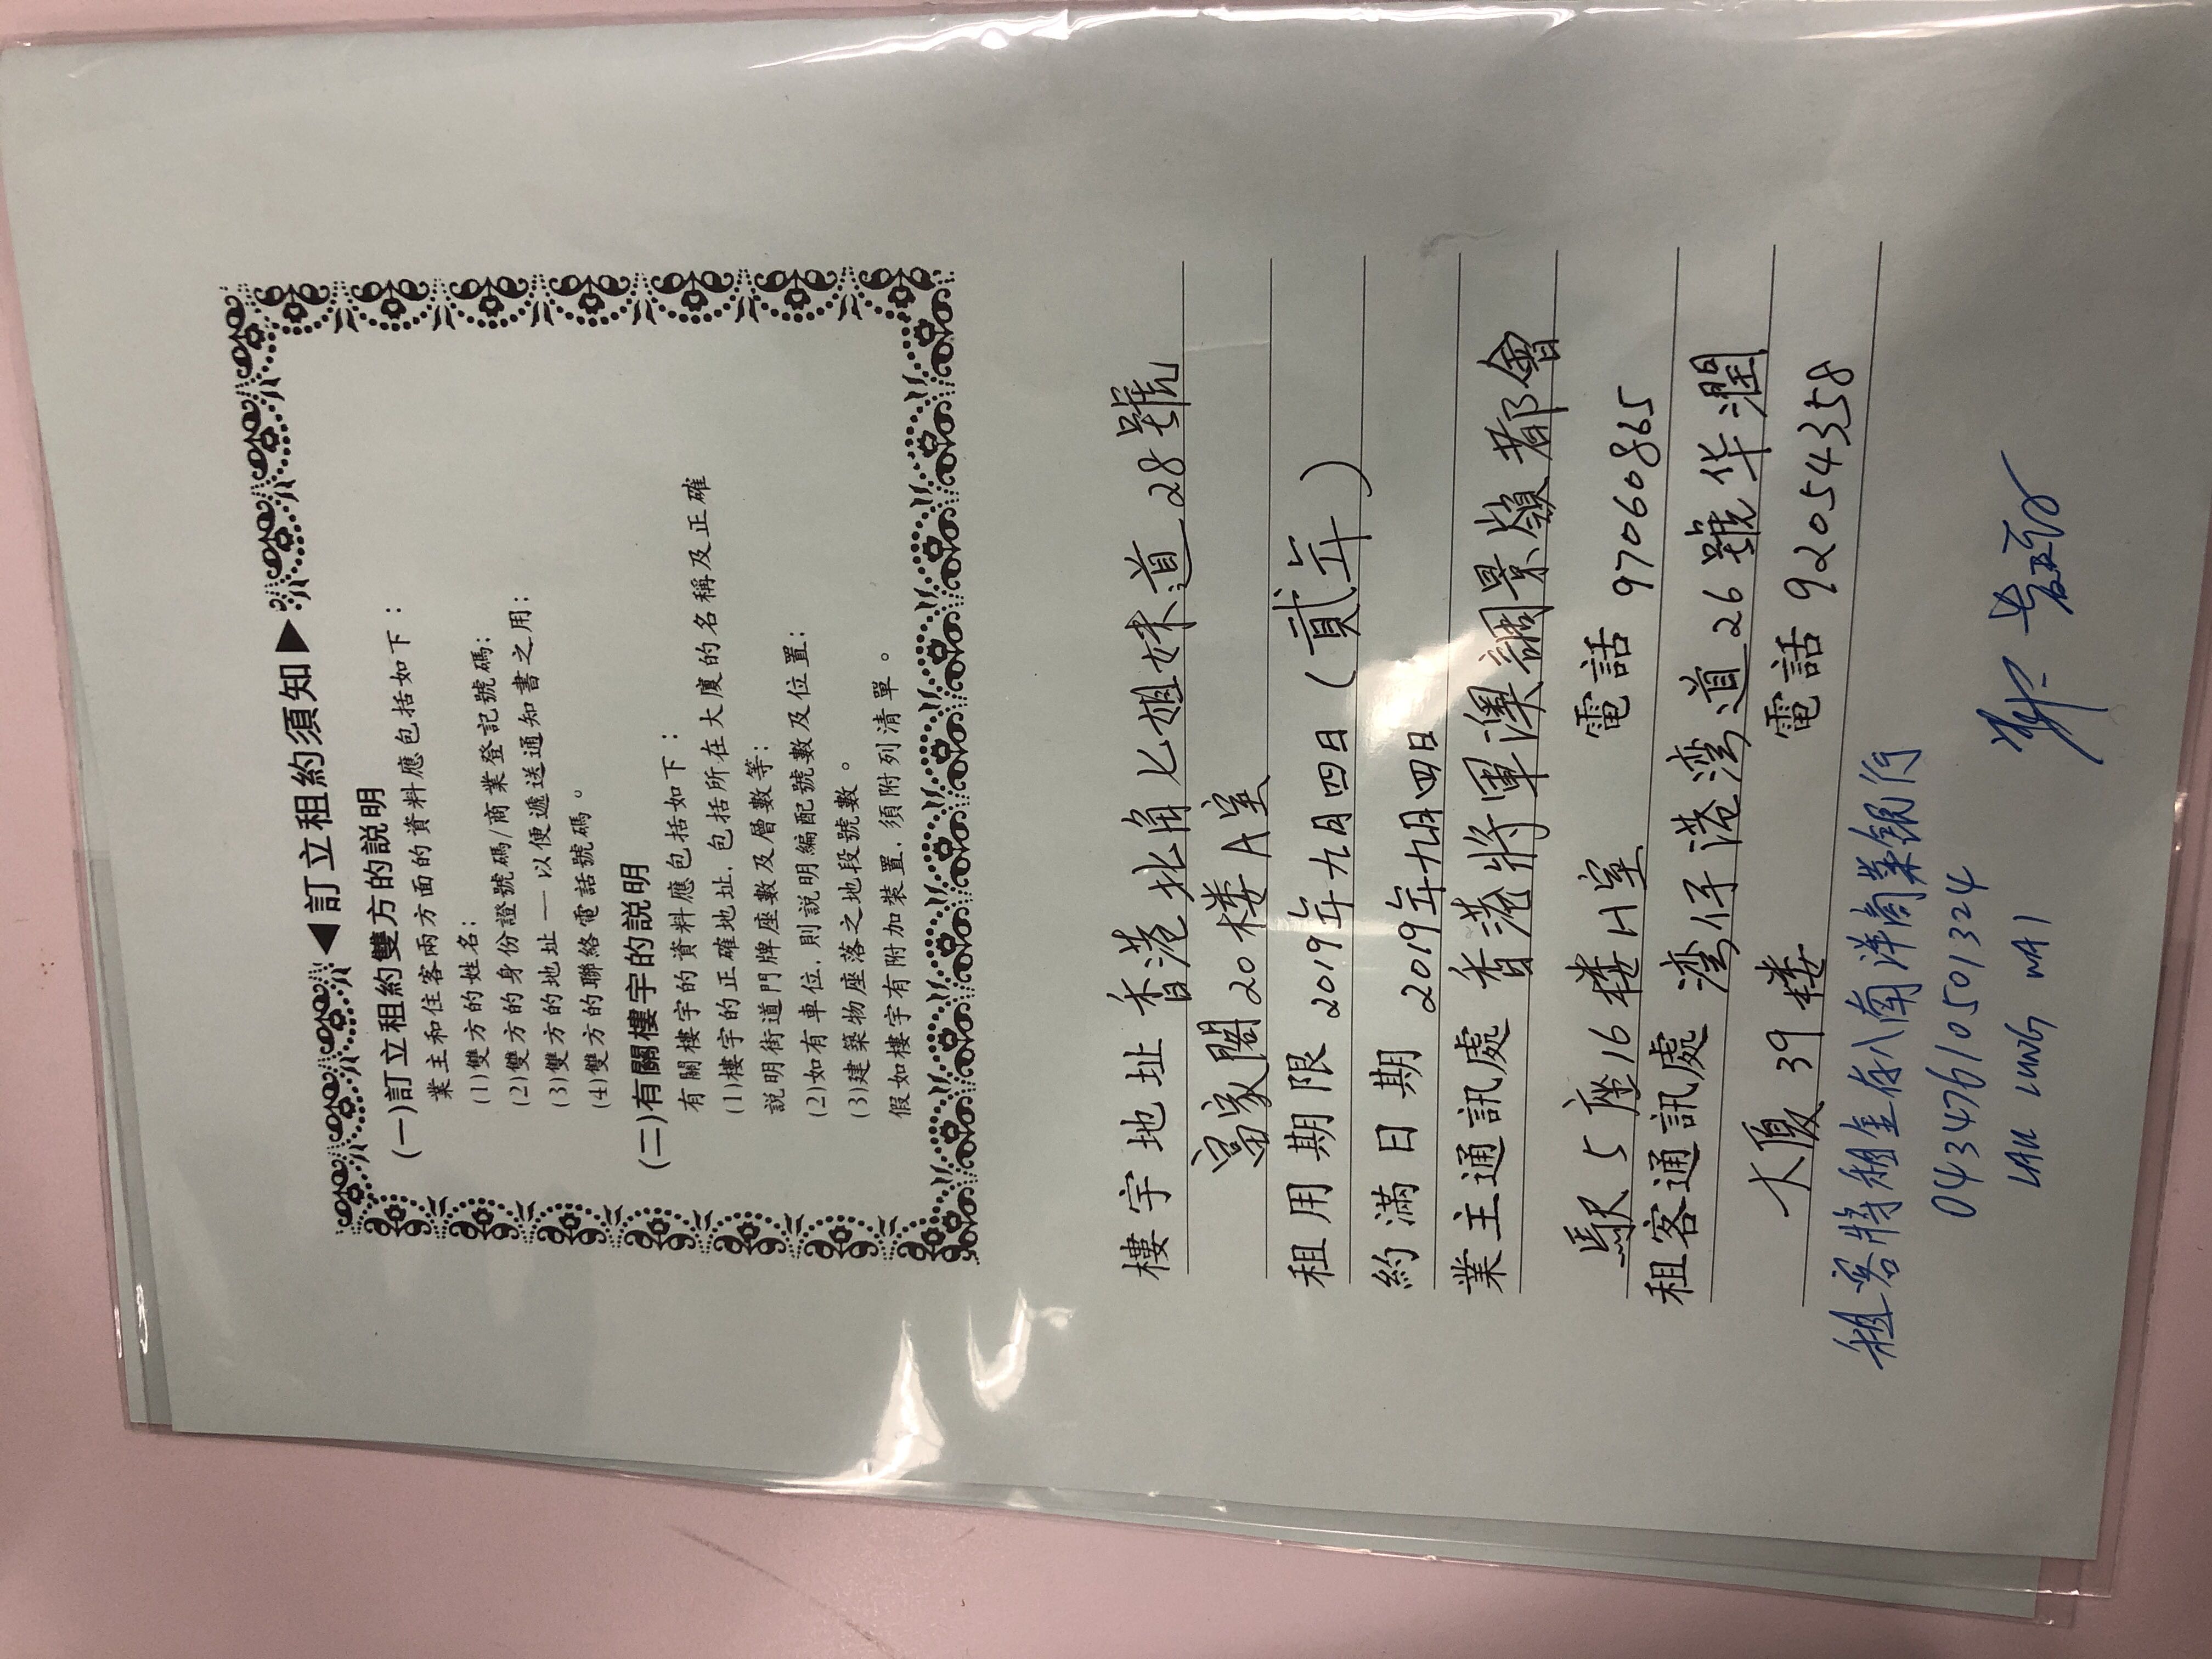 ◀訂立租約須知▶
(一)訂立租約雙方的説明
業主和住客兩方面的資料應包括如下：
(1)雙方的姓名;
(2)雙方的身份證號碼/商業登記號碼;
(3)雙方的地址 — 以便遞送通知書之用;
(4)雙方的聯絡電話號碼。
(二)有關樓宇的説明
有關樓宇的資料應包括如下：
(1)樓宇的正確地址,包括所在大廈的名稱及正確
説明街道門牌座數及層數等;
(2)如有車位,則説明編配號數及位置;
(3)建築物座落之地段號數。
假如樓宇有附加裝置,須附列清單。
樓宇地址 香港北角七姐妹道28號
富家閣20楼A室
租用期限 2019年九月四日（貳年）
約滿日期 2019年九月四日
業主通訊處 香港將軍澳調景嶺都會
駅5座16楼H室 電話 97060865
租客通訊處 湾仔港湾道26號华潤
大厦39楼 電話 92054358
租客將租金存入南洋商業銀行
04347610501324
LAU LUNG WAI